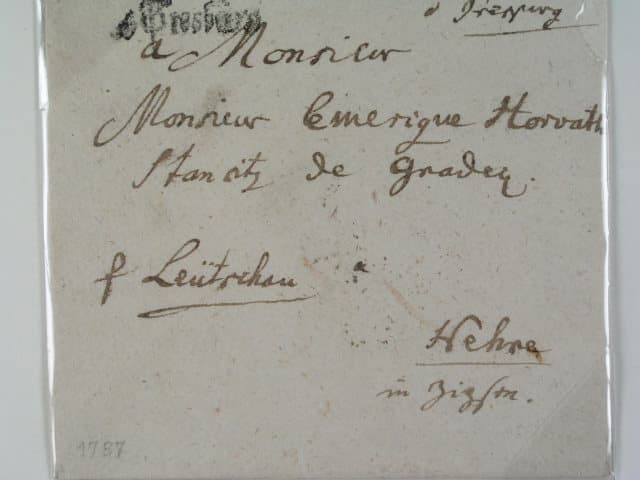 v Presburg
v Pressburg
a Monsieur
Monsieur Emerique Horvath
Stansitz de Gradeq.
p Leütschau
Nehre
in Zipsen.
1787